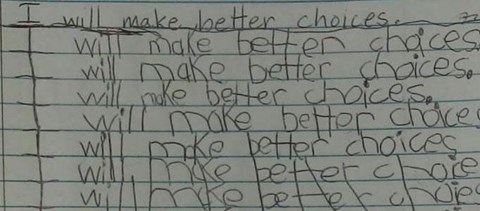 I will make better choices.
I will make better choices.
I will make better choices.
I will make better choices.
I will make better choice
I will make better choices
I will make better choice
I will make better choies